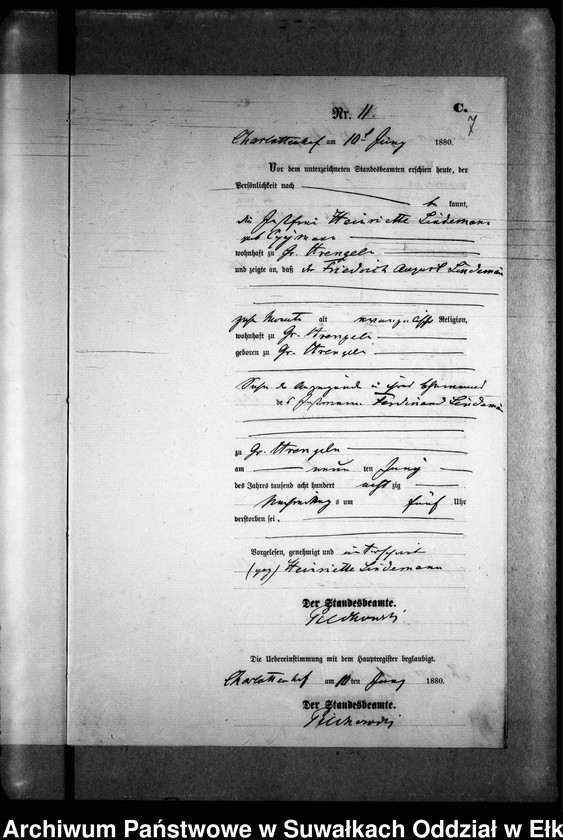 C.
Nr. 11.
7
Charlottenhof am 10t Juny 1880.
Vor dem unterzeichneten Standesbeamten erschien heute, der
Persönlichkeit nach
be kannt,
die Henriette Lindemann
geb
wohnhaft zu Gr. Strengeln
und zeigte an, daß der Friedrich August Lindemann
sechs Monate alt evangelischer Religion,
wohnhaft zu Gr. Strengeln
geboren zu Gr. Strengeln
Sohn der
des Ferdinand Lindemann
zu Gr. Strengeln
am neun ten Juny
des Jahres tausend acht hundert acht zig
Nachmittag s um fünf Uhr
verstorben sei.
Vorgelesen, genehmigt und unterschrieben
(gez) Heinriette Lindemann
Der Standesbeamte.
Die Uebereinstimmung mit dem Hauptregister beglaubigt.
Charlottenhof am 10 ten Juny 1880.
Der Standesbeamte.
Archiwum Państwowe w Suwałkach Oddział w Ełk